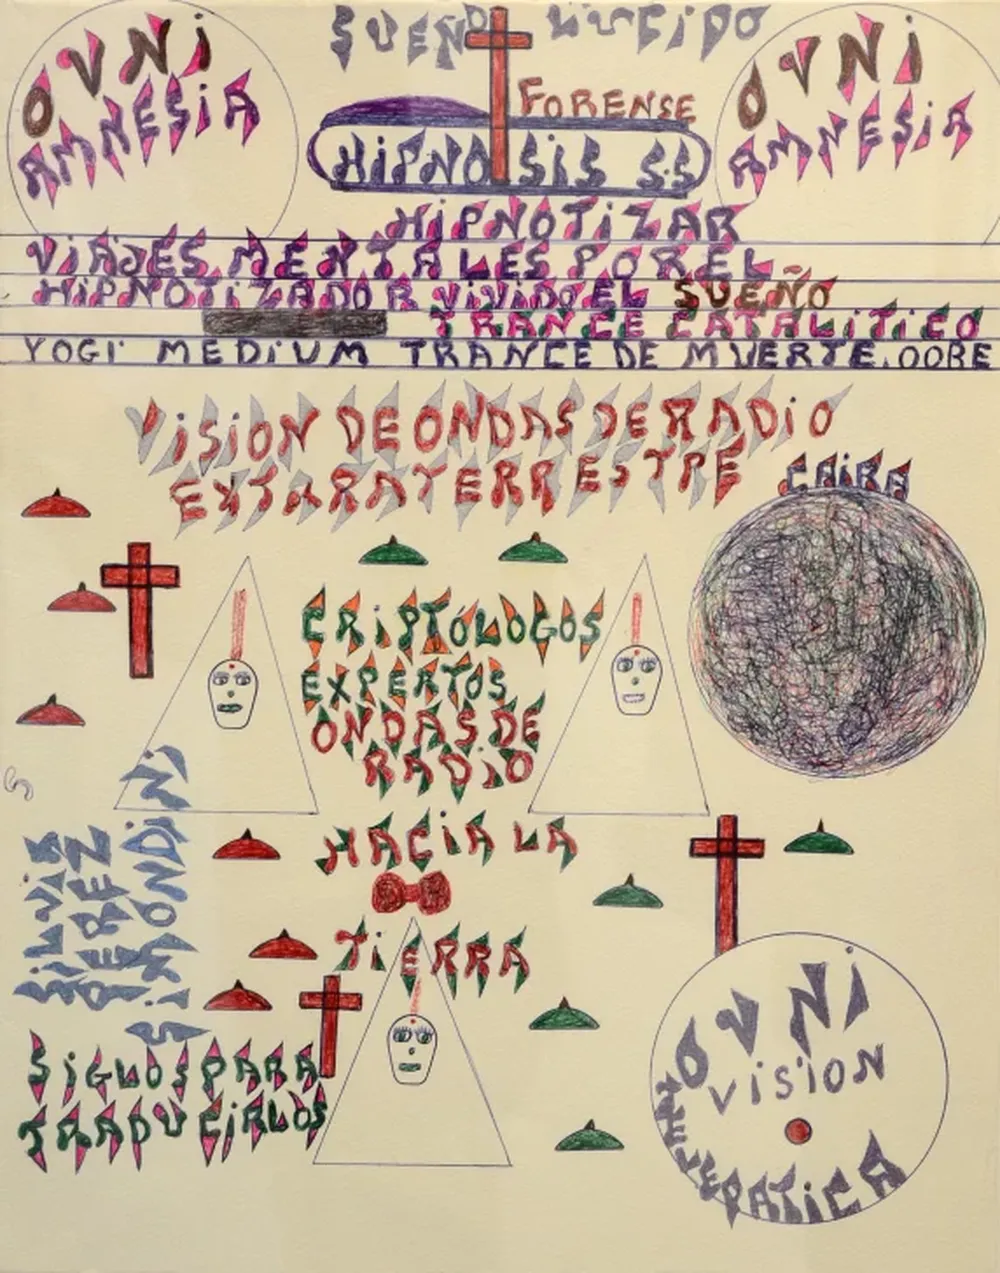 OVNi
AMNESiA
SUEÑO LUCIDO
FORENSE
HiPNOSiS S.S
OVNi
AMNESiA
HiPNOTiZAR
ViAJES MENTALES POR EL
HiPNOTiZADOR ViViDO EL SUEÑO
TRANCE CATALiTiCO
YOGi MEDiUM TRANCE DE MUERTE.OOBE
ViSiON DE ONDAS DE RADiO
EXTARATERRESTRE
CRiPTÓLOGOS
EXPERTOS
ONDAS DE
RADiO
HACiA LA
TiERRA
SiGLOS PARA
TRADUCiRLOS
OVNi
ViSiON